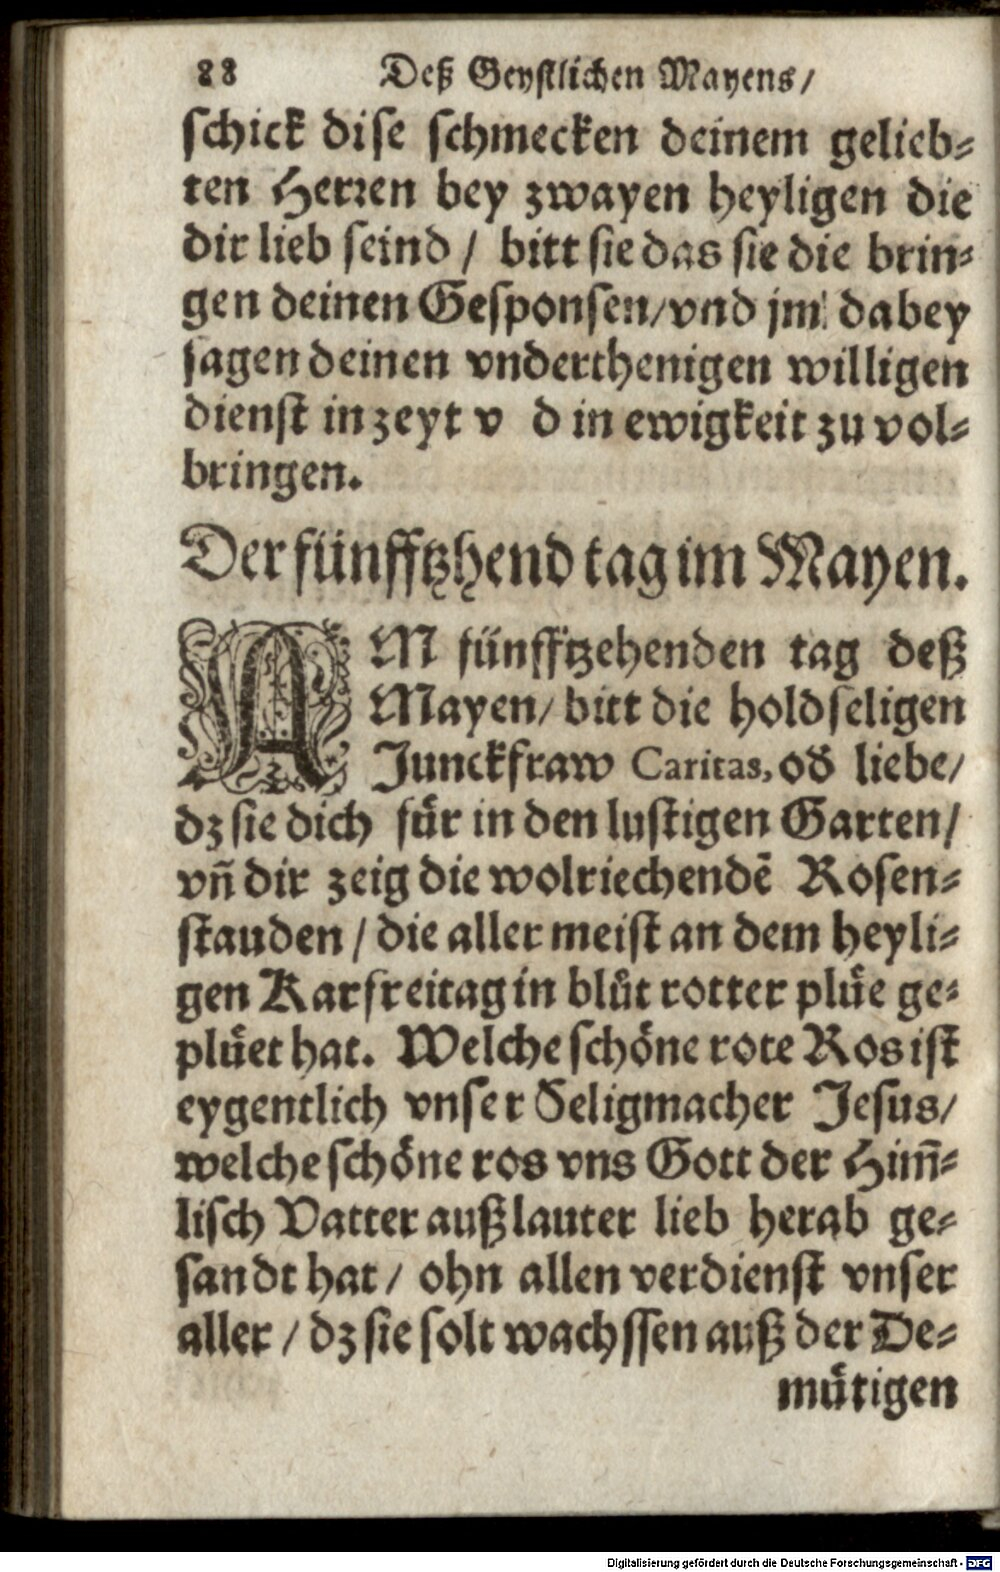 88 Deß Geystlichen Mayens/
schick dise schmecken deinem gelieb⸗
ten Herꝛen bey zwayen heyligen die
dir lieb seind / bitt sie das sie die brin⸗
gen deinen Gesponsen/vnd jm dabey
sagen deinen vnderthenigen willigen
dienst in zeyt v d in ewigkeit zu vol⸗
bringen.
Der fünfftzhend tag im Mayen.
AM fünfftzehenden tag deß
Mayen/ bitt die holdseligen
Junckfraw Caritas, oð liebe/
dz sie dich fuͤr in den lustigen Garten/
vñ dir zeig die wolriechendē Rosen⸗
stauden / die aller meist an dem heyli⸗
gen Karfreitag in bluͦt rotter pluͤe ge⸗
pluͤet hat. Welche schoͤne rote Ros ist
eygentlich vnser Seligmacher Jesus/
welche schoͤne ros vns Gott der Him̄⸗
lisch Vatter auß lauter lieb herab ge⸗
sandt hat / ohn allen verdienst vnser
aller / dz sie solt wachssen auß der De⸗
muͤtigen
Digitalisierung gefördert durch die Deutsche Forschungsgemeinschaft - DFG